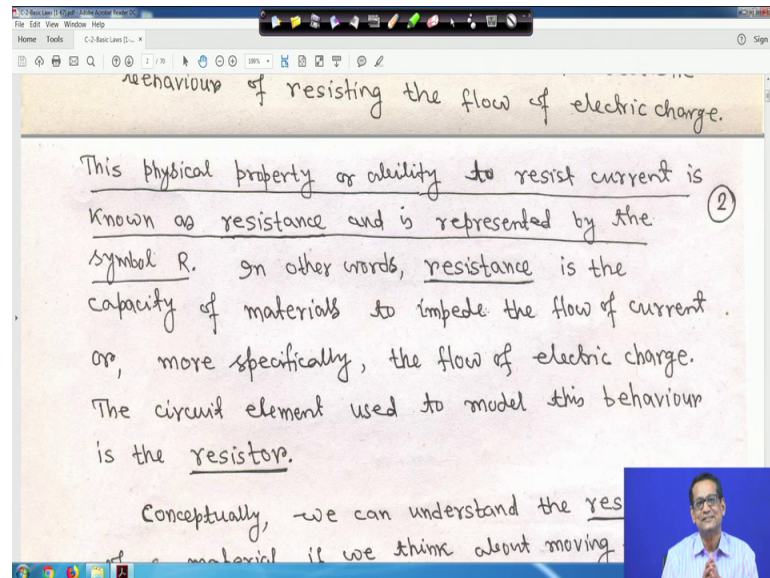 C-2-Basic Laws [1-67].pdf - Adobe Acrobat Reader DC
File Edit View Window Help
Home Tools C-2-Basic Laws [1-... × Sign
2 / 70 189%
Behaviour of resisting the flow of electric charge.
This physical property or ability to resist current is
known as resistance and is represented by the
symbol R. In other words, resistance is the
capacity of materials to impede the flow of current
or, more specifically, the flow of electric charge.
The circuit element used to model this behaviour
is the resistor.
2
Conceptually, we can understand the res
of a material if we think about moving